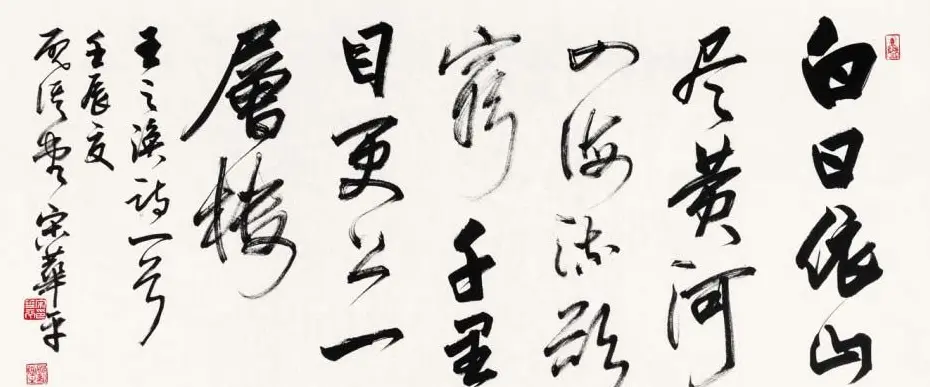 白日依山
尽黄河
入海流欲
窮千里
目更上一
層楼
王之涣诗一首
壬辰夏
宋華平